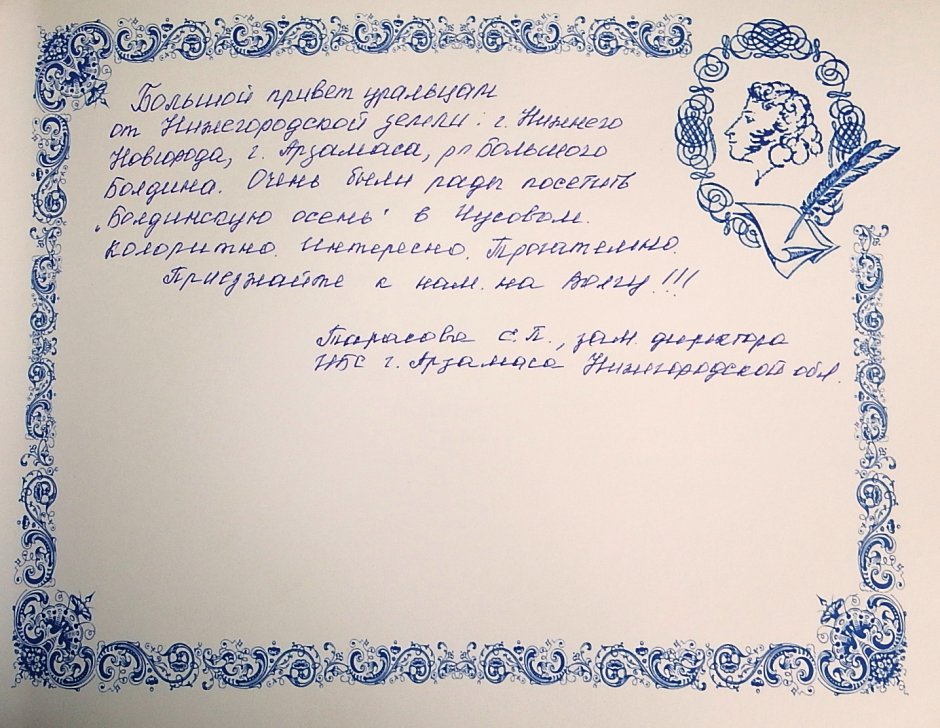 Большой привет уральцам
от Нижегородской земли: г. Нижнего
Новгорода, г. Арзамаса, рп Большого
Болдина. Очень были рады посетить
„Болдинскую осень" в Чусовом.
Колоритно. Интересно. Трогательно.
Приезжайте к нам на Волгу!!!
Тарасова С.П., зам. директора
ЦБС г. Арзамаса Нижегородской обл.